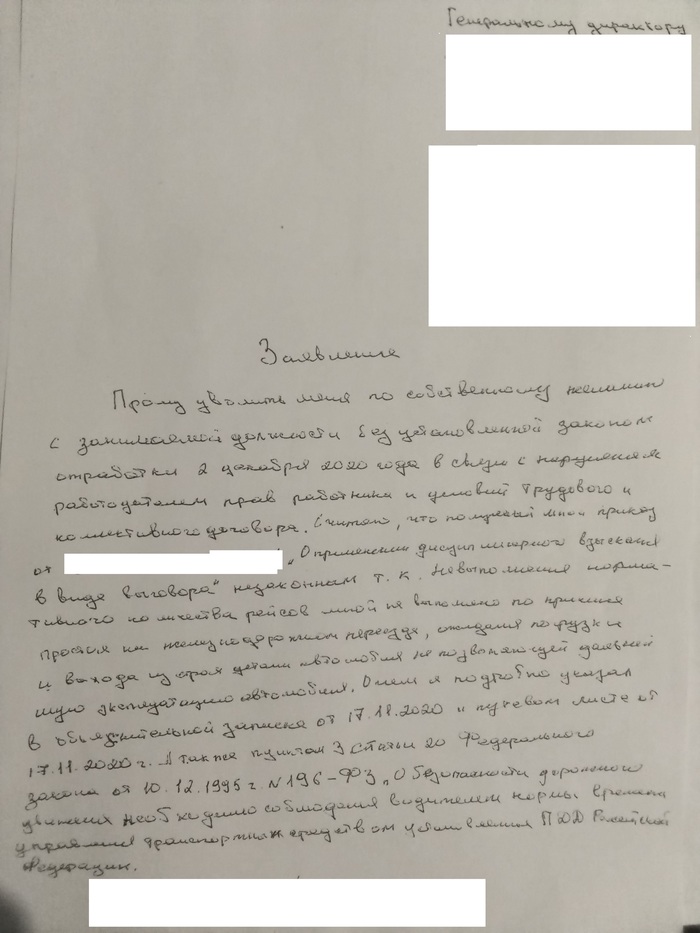 Генеральному директору
Заявление
Прошу уволить меня по собственному желанию
с занимаемой должности без установленной законом
отработки 2 декабря 2020 года в связи с нарушением
работодателем прав работника и условий Трудового и
коллективного договора. Считаю, что полученый мной приказ
от „О применении дисциплинарного взыскания
в виде выговора“ незаконным т.к. Невыполнения норма-
тивного количества рейсов мной не выполнено по причине
простоя на железнодорожном переезде, ожидания погрузки
и выхода из строя детали автомобиля не позволяющей дальней
шую эксплуатацию автомобиля. О чем я подробно указал
в объяснительной записке от 17.11.2020 и путевом листе от
17.11.2020 г. А также пунктом 3 Статьи 20 Федерального
закона от 10.12.1995 г. N196-ФЗ „О безопасности дорожного
движения необходимо соблюдения водителем нормы времени
управления транспортным средством установленя ПДД Российской
Федерации.